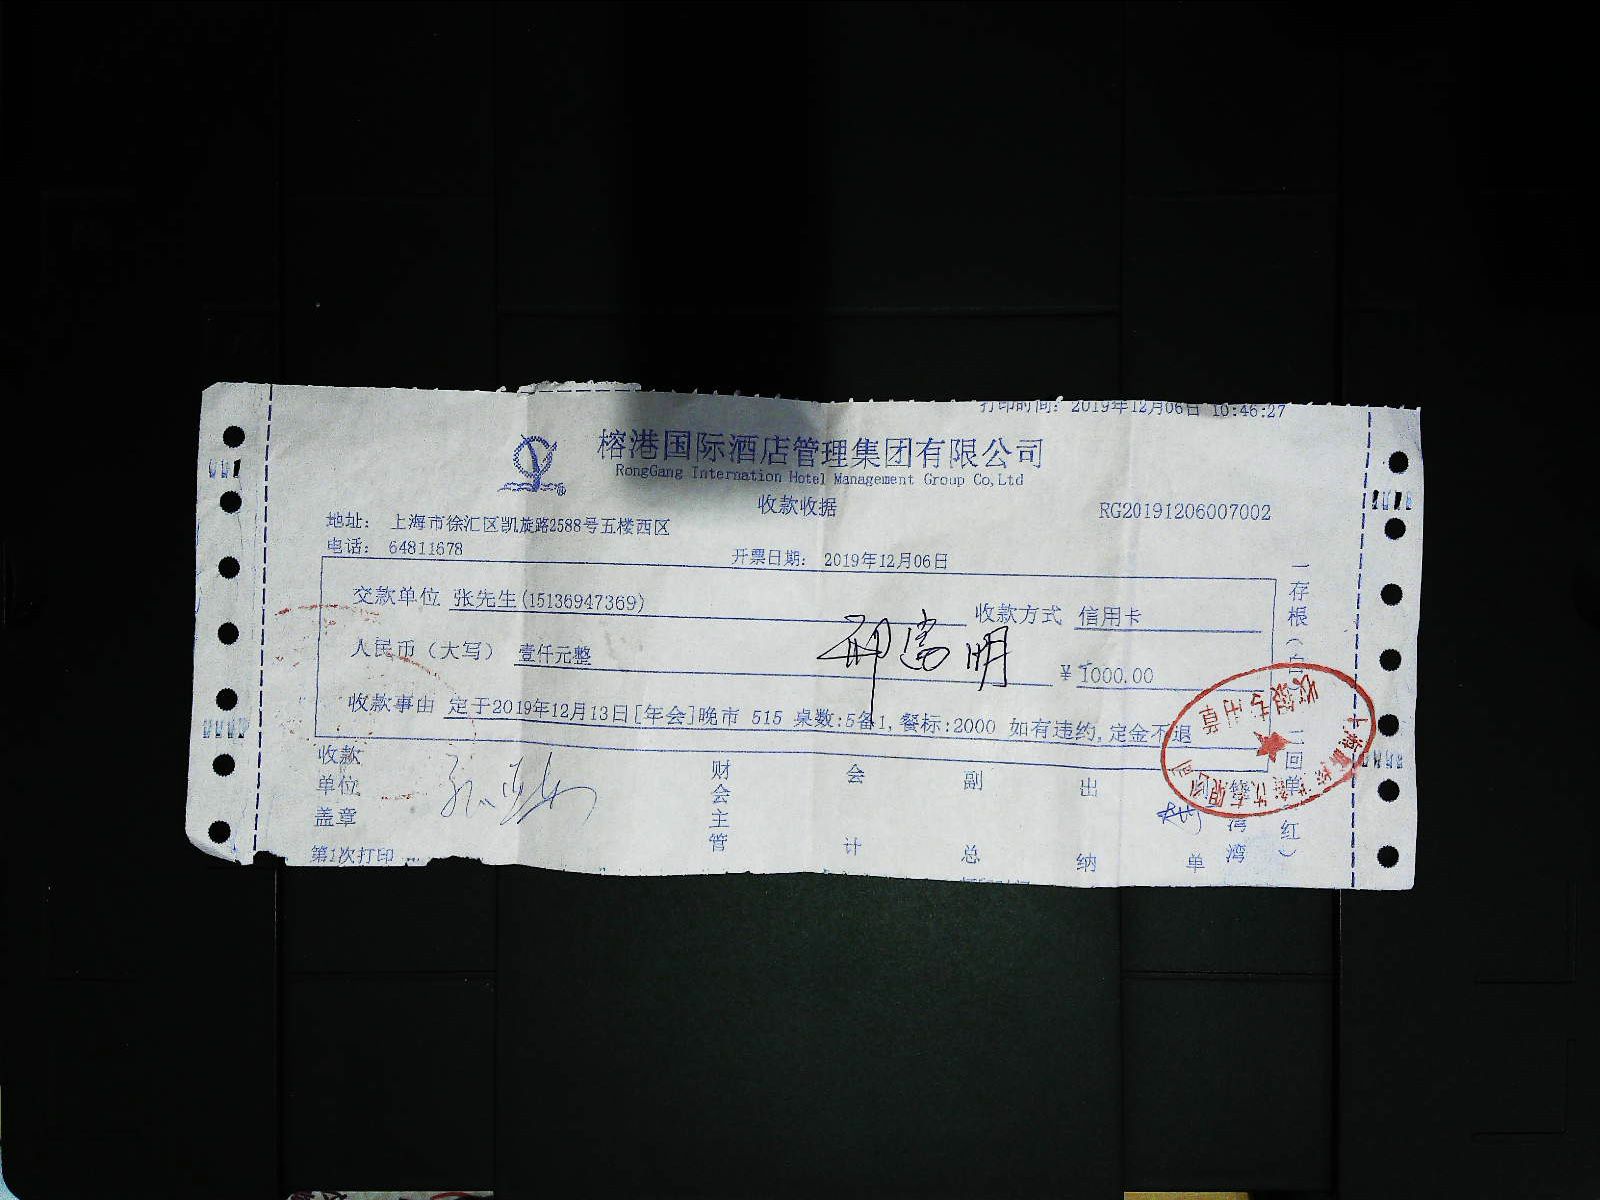 打印时间: 2019年12月06日 10:46:27
榕港国际酒店管理集团有限公司
RongGang Internation Hotel Management Group Co,Ltd
收款收据
RG20191206007002
地址: 上海市徐汇区凯旋路2588号五楼西区
电话: 64811678
开票日期: 2019年12月06日
交款单位 张先生(15136947369)
收款方式 信用卡
人民币（大写） 壹仟元整
¥ 1000.00
收款事由 定于2019年12月13日[年会]晚市 515 桌数:5备1,餐标:2000 如有违约,定金不退
收款单位盖章
财会主管
会计
副总
出纳
单
湾湾
一存根（白
二回单
红）
收银专用章
第1次打印